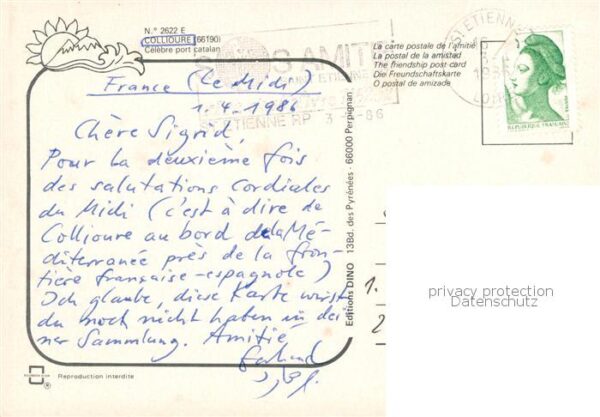 N.° 2622 E
COLLIOURE (66190)
Célèbre port catalan
La carte postale de l'amitié
La postal de la amistad
The friendship post card
Die Freundschaftskarte
O postal de amizade
France (Le Midi)
1.4.1986
Chère Sigrid,
Pour la deuxième fois
des salutations cordiales
du Midi (c'est à dire de
Collioure au bord de la Mé-
diterranée près de la fron-
tière française-espagnole)
Ich glaube, diese Karte wirst
du noch nicht haben in dei
ner Sammlung. Amitié
Gerhard
Editions DINO 13Bd. des Pyrénées - 66000 Perpignan
ST ETIENNE
ETIENNE RP 3 86
REPUBLIQUE FRANCAISE
1.
2
privacy protection
Datenschutz
Reproduction interdite